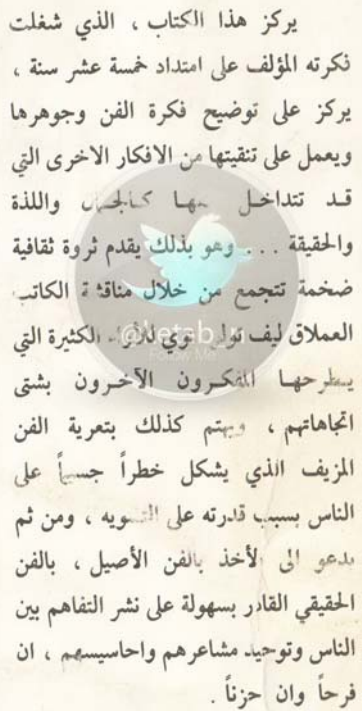 يركز هذا الكتاب ، الذي شغلت
فكرته المؤلف على امتداد خمسة عشر سنة ،
يركز على توضيح فكرة الفن وجوهرها
ويعمل على تنقيتها من الافكار الاخرى التي
قد تتداخل معها كالجمال واللذة
والحقيقة . . . وهو بذلك يقدم ثروة ثقافية
ضخمة تتجمع من خلال مناقشة الكاتب
العملاق ليف تولستوي للآراء الكثيرة التي
@ketab_n
Follow Me
يطرحها المفكرون الآخرون بشتى
اتجاهاتهم ، ويهتم كذلك بتعرية الفن
المزيف الذي يشكل خطراً جسيماً على
الناس بسبب قدرته على التشويه ، ومن ثم
يدعو الى الأخذ بالفن الأصيل ، بالفن
الحقيقي القادر بسهولة على نشر التفاهم بين
الناس وتوحيد مشاعرهم واحاسيسهم ، ان
فرحاً وان حزناً .